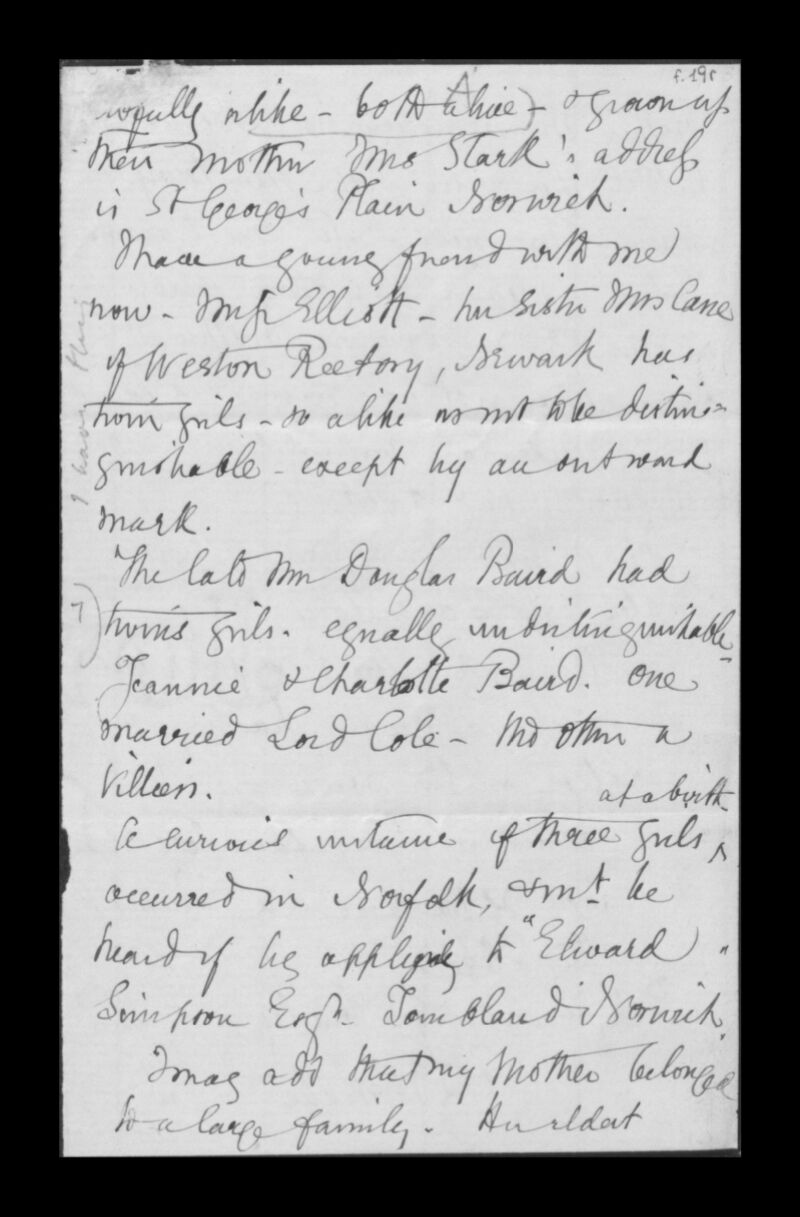 f.19r
alike - both alive) - & grown up
their Mother Mrs Stark's address
is St George's Plain Norwich.
I have a young friend with me
now - Miss Elliott - her sister Mrs Cane
of Weston Rectory, Newark has
twin girls - so alike as not to be distin=
guishable - except by an outward
mark.
The late Mr Douglas Baird had
twins girls. equally undistinguishable -
Jeannie & Charlotte Baird. One
married Lord Cole - the other a
Villiers.
at a birth
A curious instance of three girls
occurred in Norfolk, & mt be
heard of by applying to "Edward
Simpson Esqr. Tombland Norwich"
I may add that my Mother belonged
to a large family. Her eldest
I have this